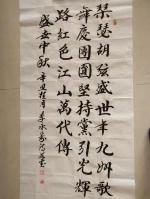 琴瑟胡弦盛世年九州歌
年慶團圓堅持黨引光輝
路紅色江山萬代傳
盛世中秋